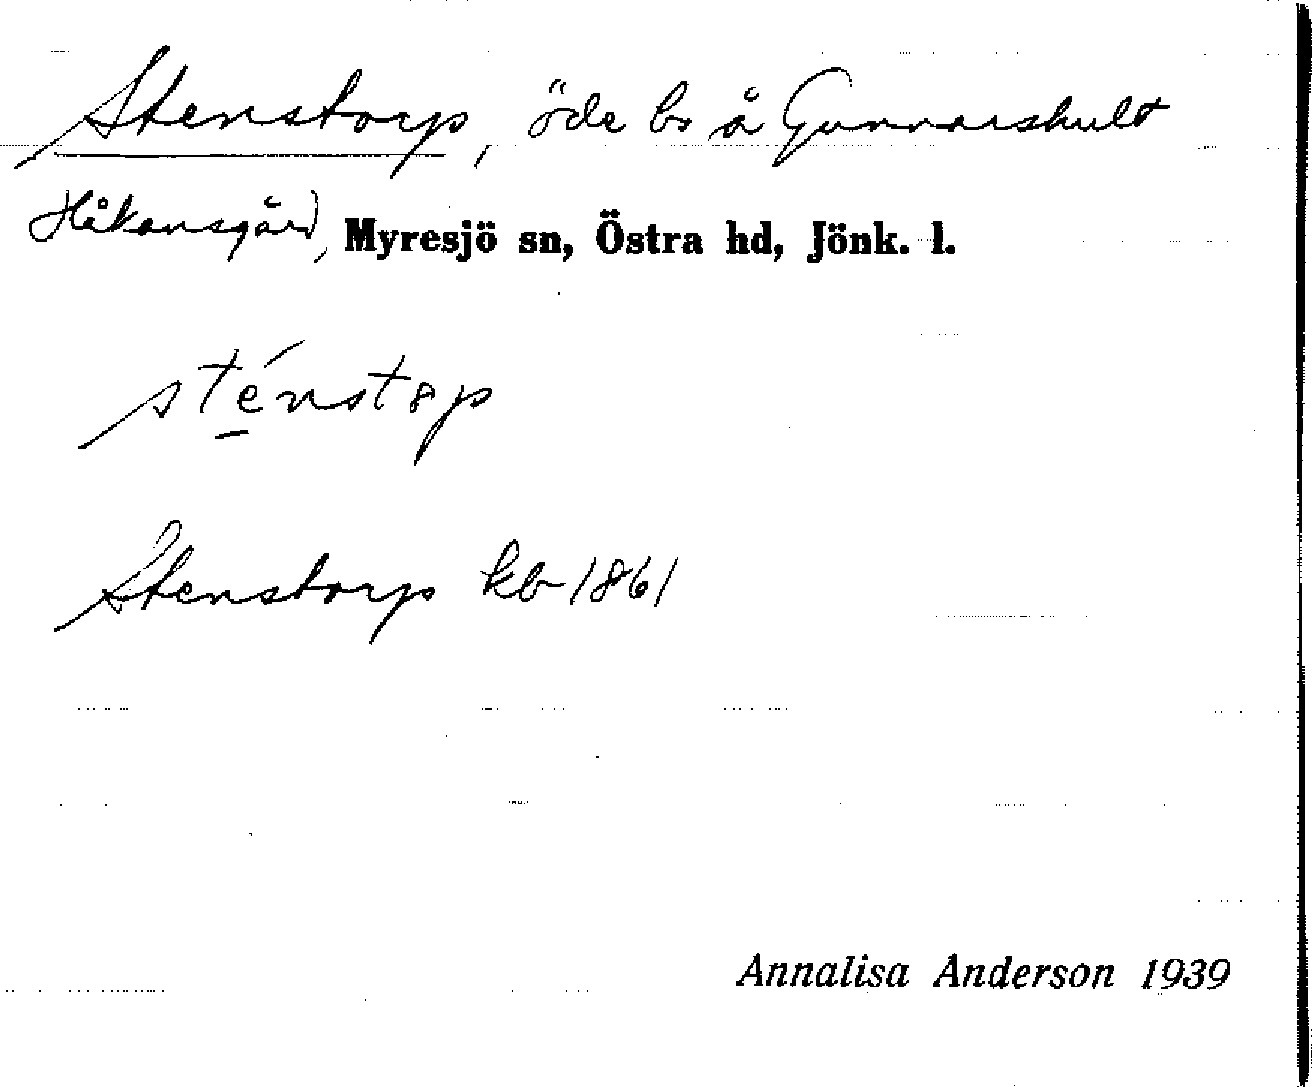 Stenstorp, öde br å Gunnarskult
Håkansgård, Myresjö sn, Östra hd, Jönk. l.
sténstop
Stenstorp kb 1861
Annalisa Anderson 1939